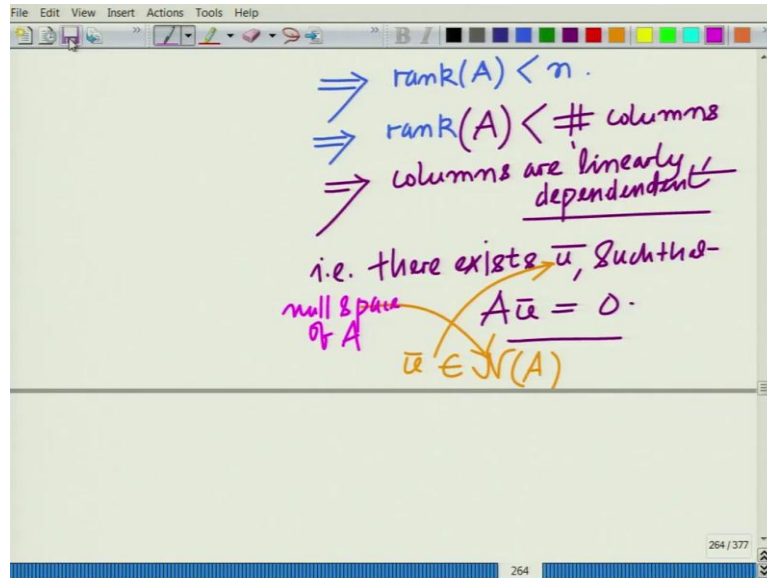 File Edit View Insert Actions Tools Help
B I
⇒ rank(A) < n.
⇒ rank(A) < # columns
⇒ columns are linearly
dependendent
i.e. there exists ū, such that
null space
of A
Aū = 0.
ū ∈ N(A)
264 / 377
264